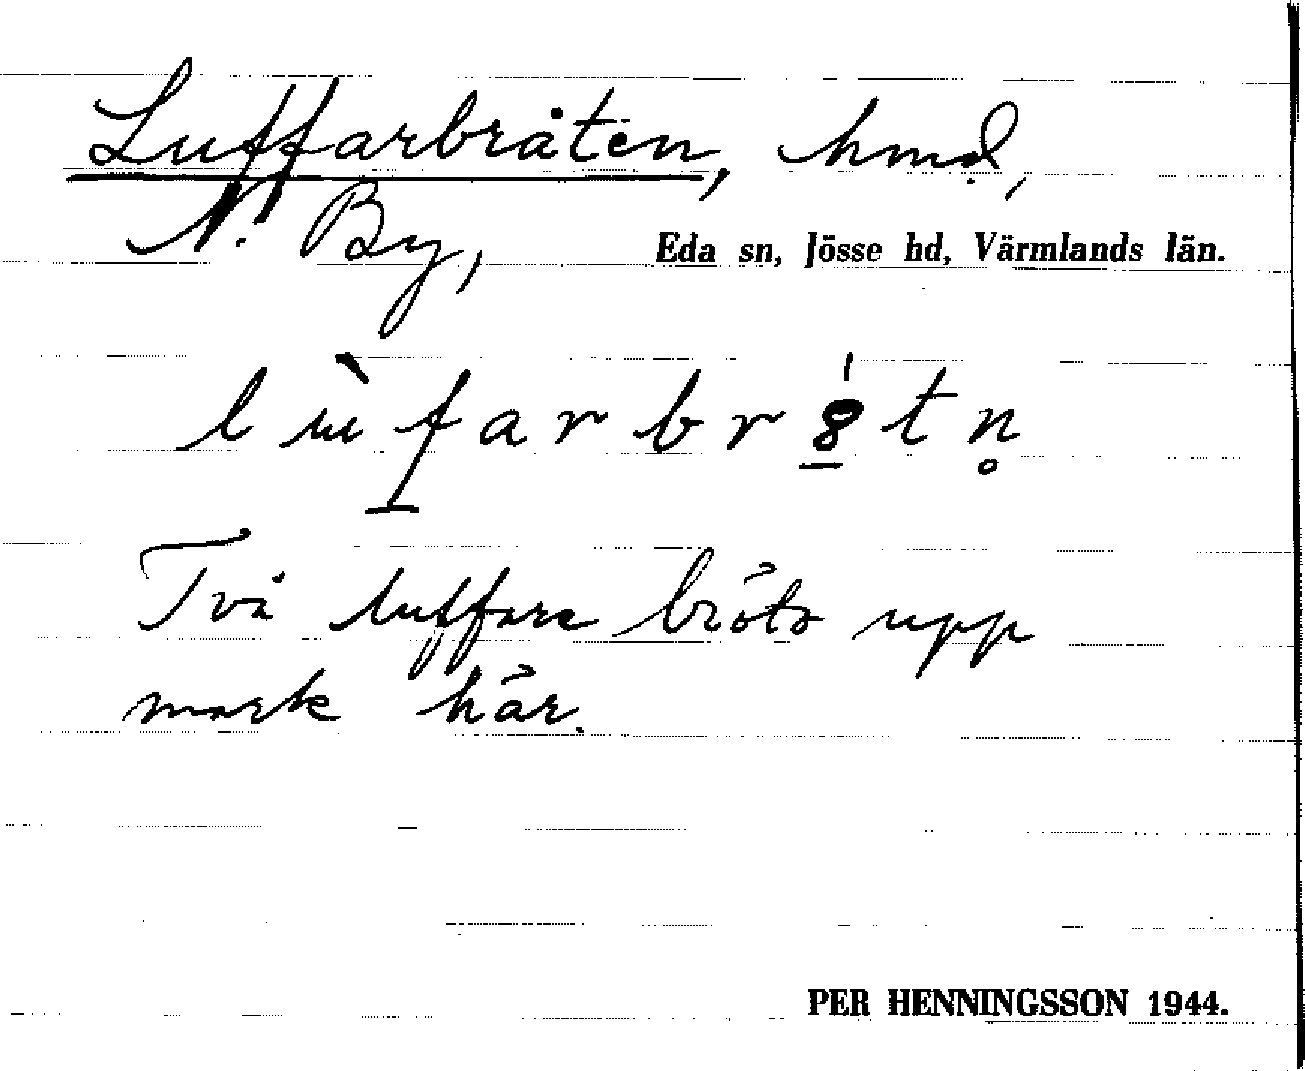 Luffarbråten, hmd,
N. By,
Eda sn, Jösse hd, Värmlands län.
Två luffare bröto upp
mark här.
PER HENNINGSSON 1944.